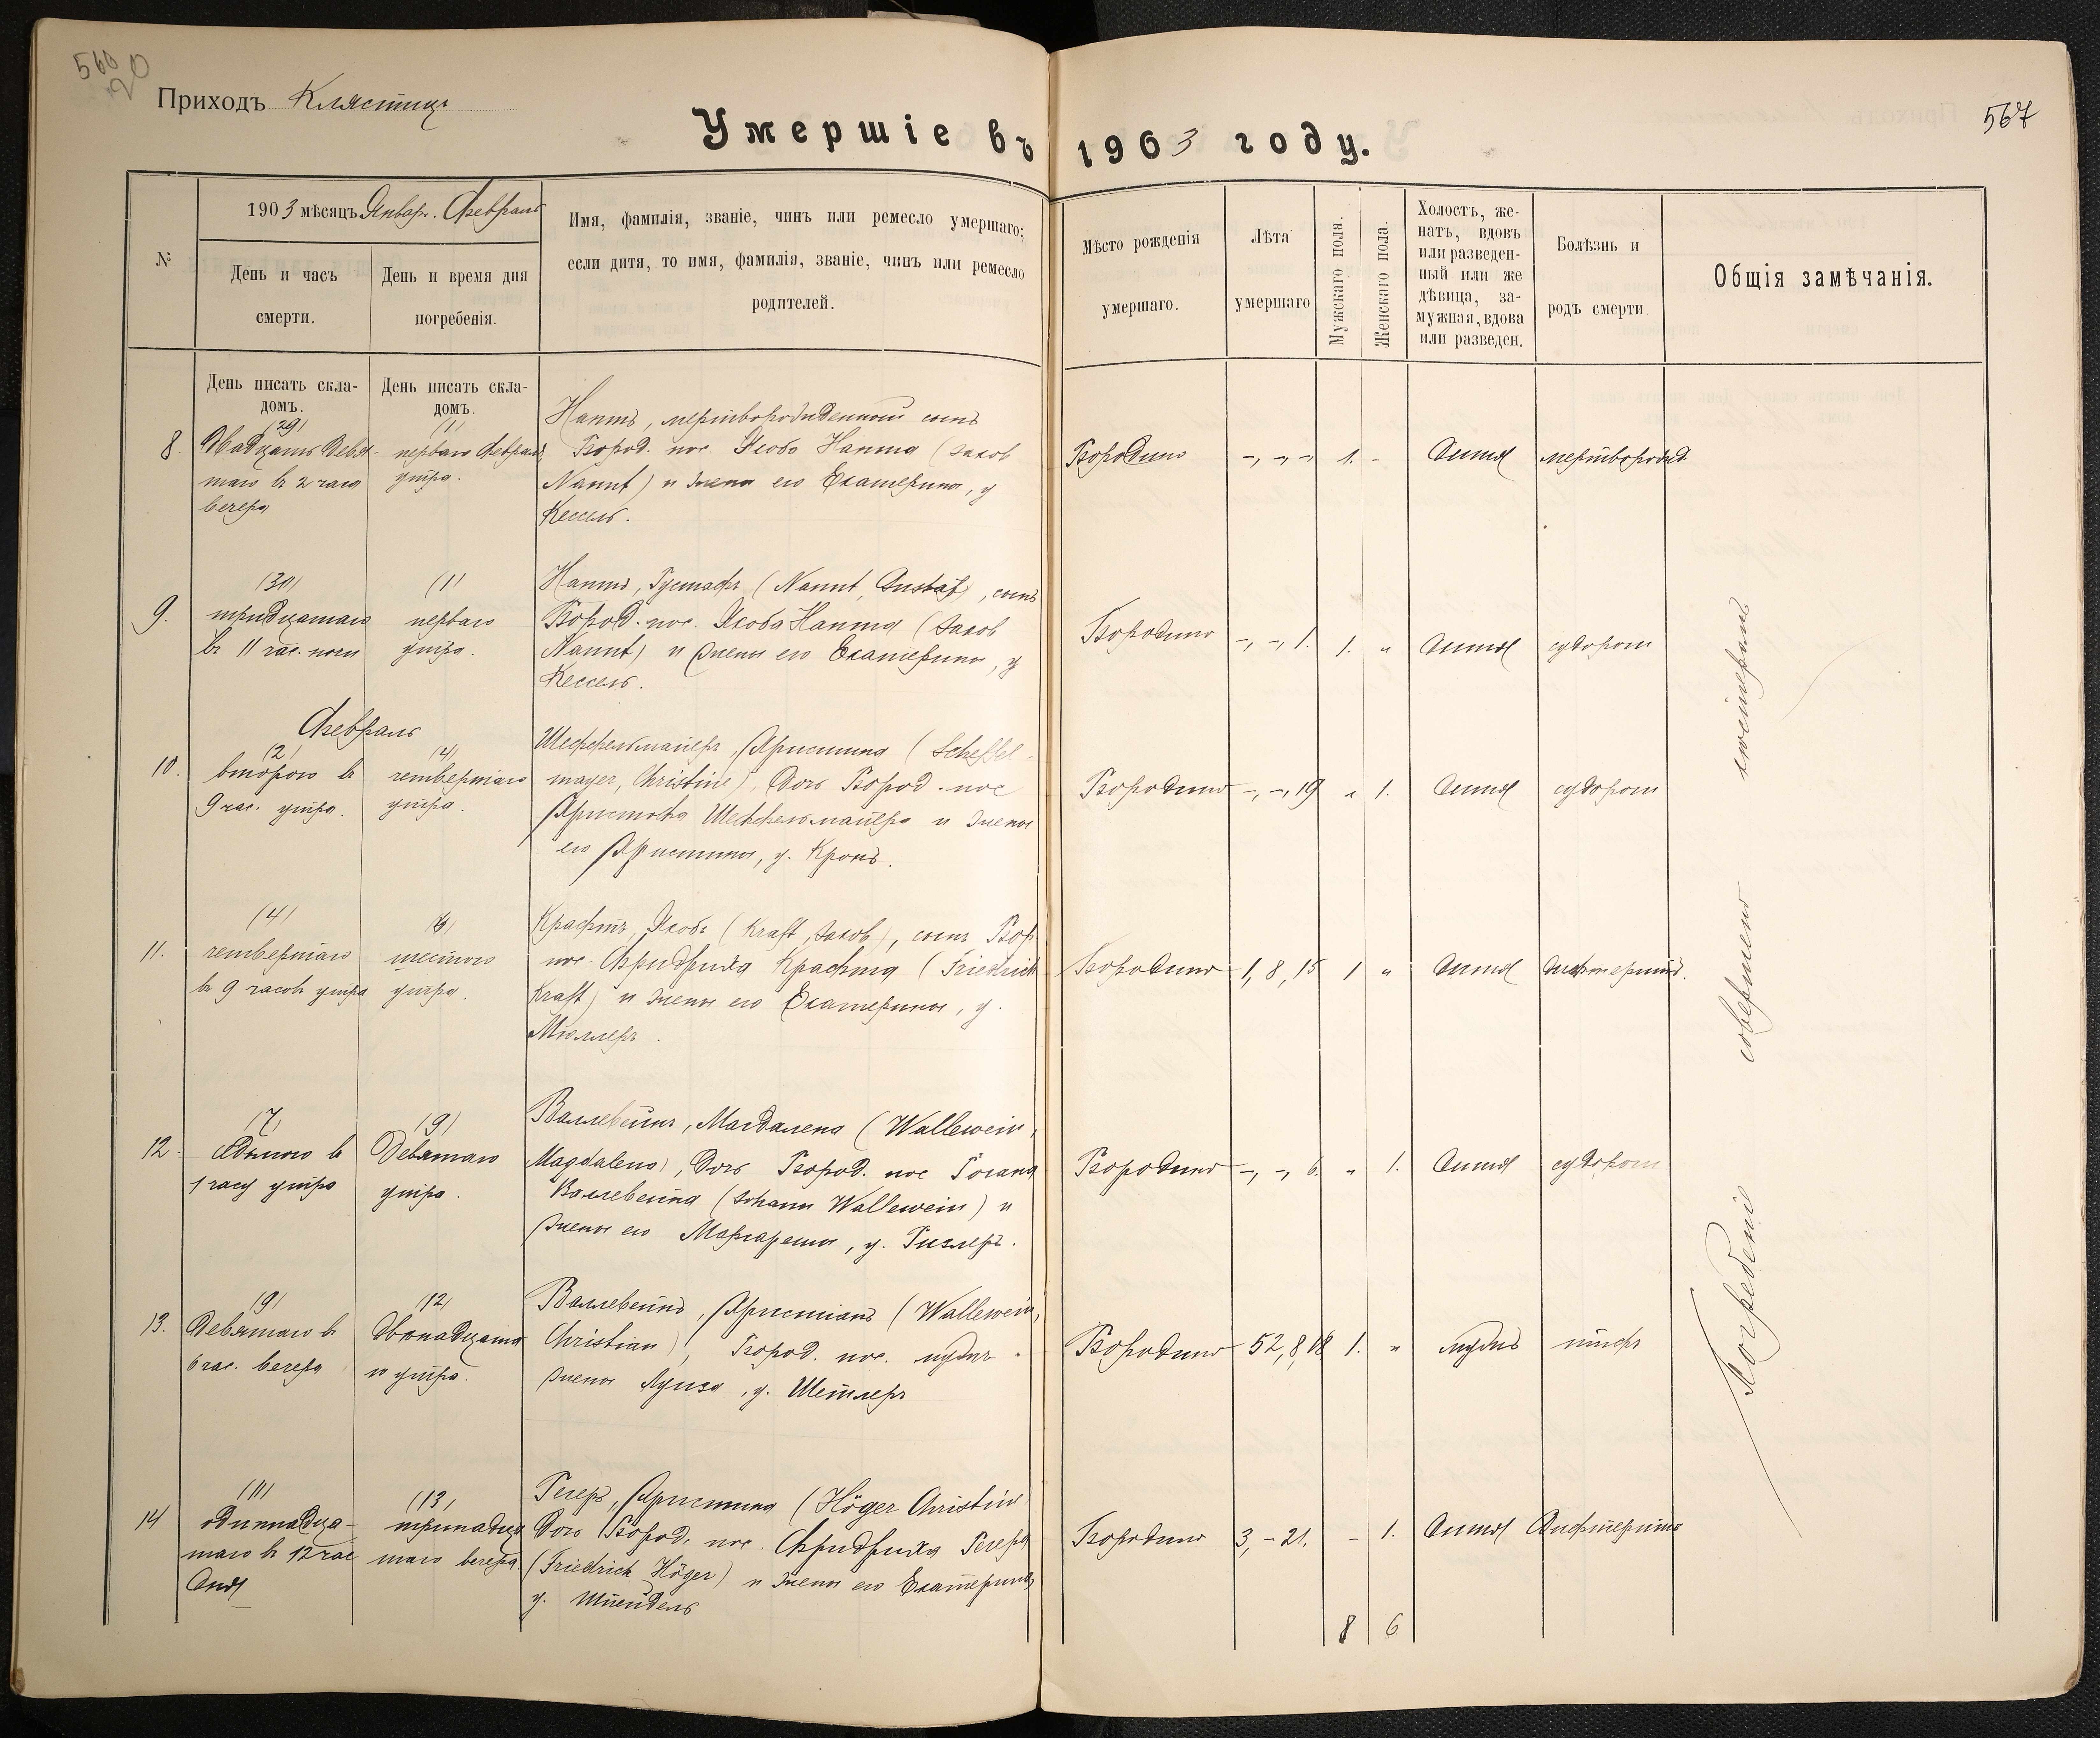 560
20
Приходъ Клястицъ
567
Умершіе въ 1903 году.
№
1903 мѣсяцъ Январ. Февраль
День и часъ смерти.
День и время дня погребенія.
Имя, фамилія, званіе, чинъ или ремесло умершаго;
если дитя, то имя, фамилія, званіе, чинъ или ремесло
родителей.
Мѣсто рожденія
умершаго.
Лѣта
умершаго
Мужскаго пола.
Женскаго пола.
Холостъ, же-
натъ, вдовъ
или разведен-
ный или же
дѣвица, за-
мужная, вдова
или разведен.
Болѣзнь и
родъ смерти.
Общія замѣчанія.
День писать скла-
домъ.
День писать скла-
домъ.
8
(29)
Двадцать девя-
таго въ 2 часа
вечера
(1)
перваго февраля
утра.
Наннтъ, мертворожденный сынъ
Бород. пос. Якоба Наннта (Jakob
Nannt) и жены его Екатерины, у
Кессель.
Бородино
-, -, -
1.
-
дитя
мертворожд.
9.
(30)
тридцатаго
въ 11 час. ночи
(1)
перваго
утра.
Наннтъ, Густафъ (Nannt, Gustaf), сынъ
Бород. пос. Якоба Наннта (Jakob
Nannt) и жены его Екатерины, у
Кессель.
Бородино
-, -, 1.
1.
"
дитя
судороги
Февраль
10.
(2)
второго въ
9 час. утра.
(4)
четвертаго
утра.
Шеффельмайеръ, Христина (Scheffel-
mayer, Christine), дочь Бород. пос
Христофа Шеффельмайера и жены
его Христины, у. Кронъ.
Бородино
-, -, 19
"
1.
дитя
судороги
11.
(4)
четвертаго
въ 9 часовъ утра
(6)
шестого
утра.
Крафтъ, Якобъ (Kraft, Jakob), сынъ Бор
пос. Фридриха Крафта (Friedrich
Kraft) и жены его Екатерины, у.
Мюллеръ.
Бородино
1, 8, 15
1
"
дитя
дифтеритъ.
12.
(7)
седьмого въ
1 часу утра
(9)
девятаго
утра.
Валлевейнъ, Магдалена (Wallewein,
Magdalena), дочь Бород. пос Іоганна
Валлевейна (Johann Wallewein) и
жены его Маргареты, у. Гизлеръ.
Бородино
-, -, 6.
"
1.
дитя
судороги
13.
(9)
девятаго въ
6 час. вечера
(12)
двенадцата
го утра.
Валлевейнъ, Христіанъ (Wallewein,
Christian), Бород. пос. мужъ
жены Луиза, у. Шетлеръ
Бородино
52, 8, 18
1.
"
мужъ
тифъ
14
(11)
одиннадца-
таго въ 12 час
дня
(13)
тринадца
таго вечера.
Гегеръ, Христина (Höger Christine
дочь Бород. пос. Фридриха Гегера
(Friedrich Höger) и жены его Екатерины,
у. Штейдель
Бородино
3, - 21.
-
1.
дитя
дифтеритъ
8
6
Погребеніе совершено кистеромъ